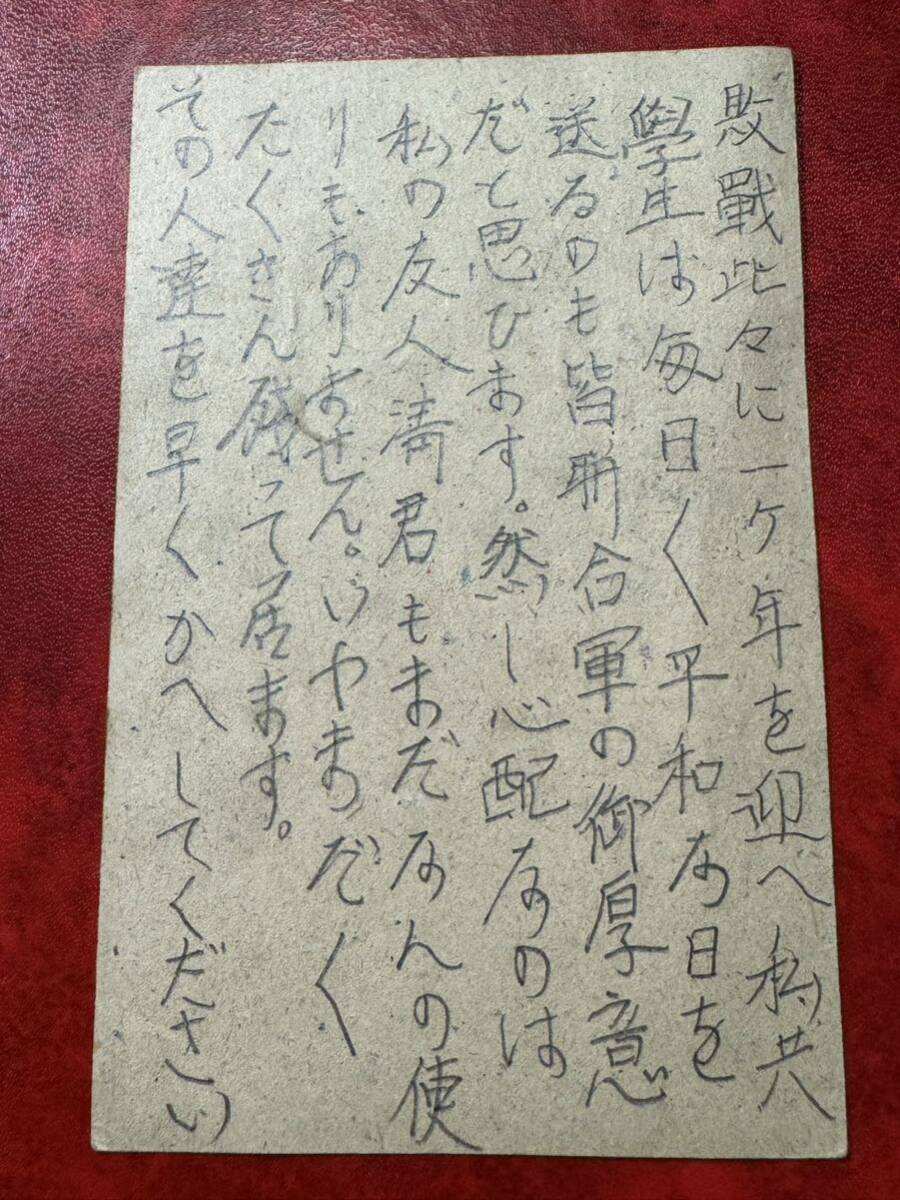 敗戰此々に一ケ年を迎へ私共
學生は每日〱平和な日を
送るのも皆聨合軍の御厚意
だと思ひます。然し心配なのは
私の友人淸君もまだなんの使
りもありません。いやまだ〱
たくさん殘って居ます。
その人達を早くかへしてください